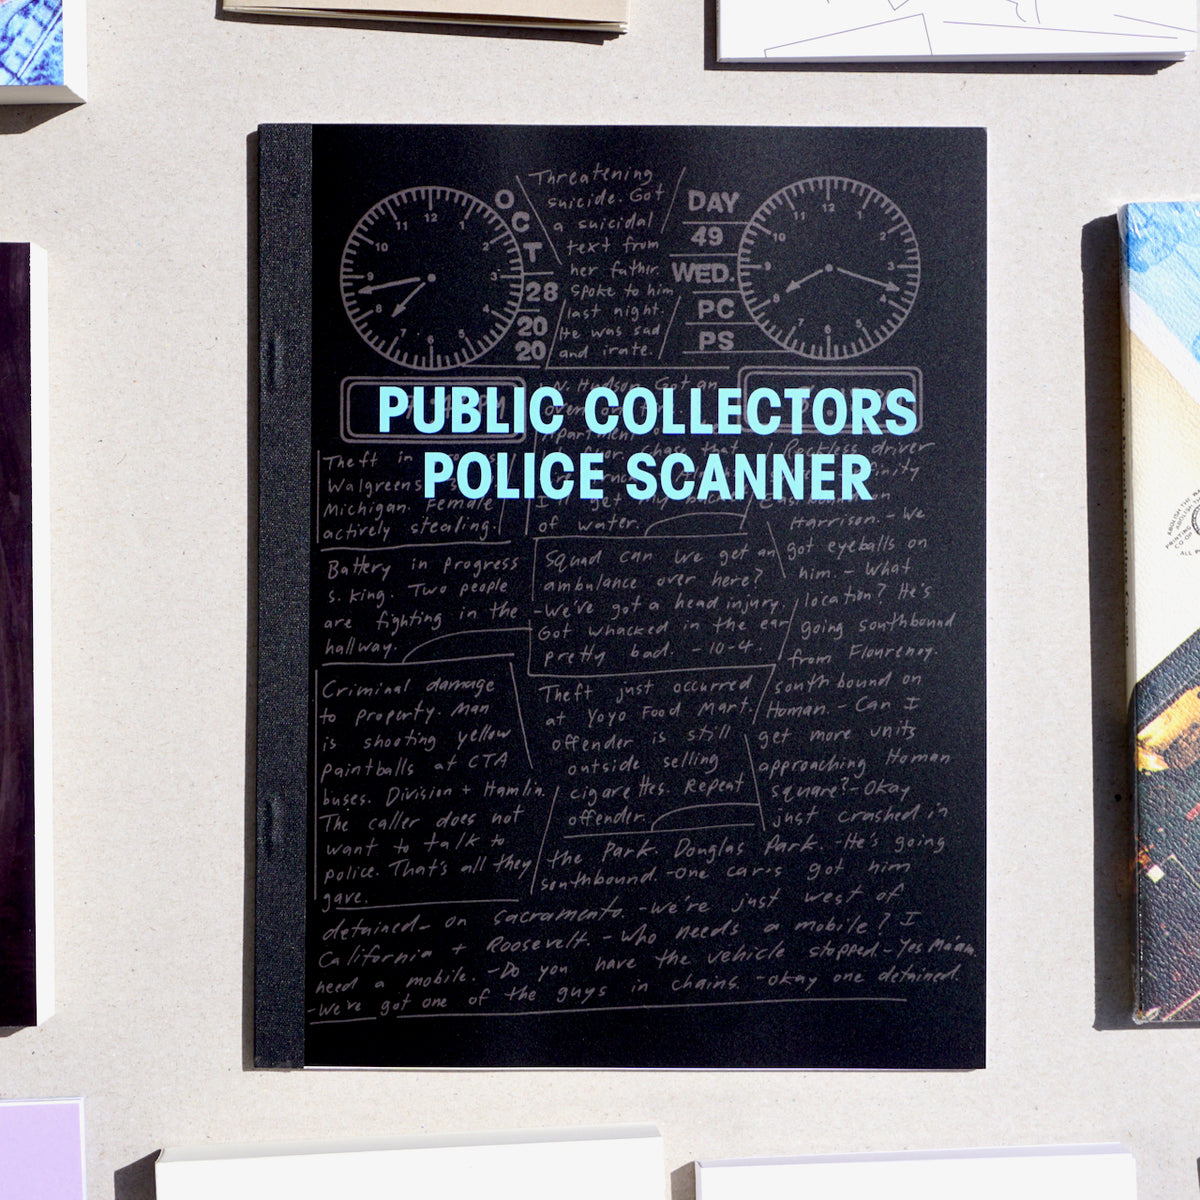 PUBLIC COLLECTORS
POLICE SCANNER
12
1
2
3
4
5
6
7
8
9
10
11
OCT
28
20
20
Threatening
suicide. Got
a suicidal
text from
her father.
Spoke to him
last night.
He was sad
and irate.
DAY
49
WED.
PC
PS
12
1
2
3
4
5
6
7
8
9
10
11
N. Hudson Got an
Theft in
Walgreens
Michigan. Female
actively stealing.
Battery in progress
S. King. Two people
are fighting in the
hallway.
Criminal damage
to property. Man
is shooting yellow
paintballs at CTA
buses. Division + Hamlin.
The caller does not
want to talk to
police. That's all they
gave.
I'll get my
of water.
Squad can we get an
ambulance over here?
-We've got a head injury.
Got whacked in the ear
pretty bad. - 10-4.
Theft just occurred
at Yoyo Food Mart.
Offender is still
outside selling
cigarettes. Repeat
offender.
Reckless driver
Harrison. - We
got eyeballs on
him. - What
location? He's
going southbound
from Flournoy.
Southbound on
Homan. - Can I
get more units
approaching Homan
square? - Okay
just crashed in
the Park. Douglas Park. - He's going
southbound. -One car's got him
detained- on Sacramento. -We're just west of
California + Roosevelt. - Who needs a mobile? I
need a mobile. -Do you have the vehicle stopped - Yes Ma'am
-We've got one of the guys in chains. -Okay one detained.